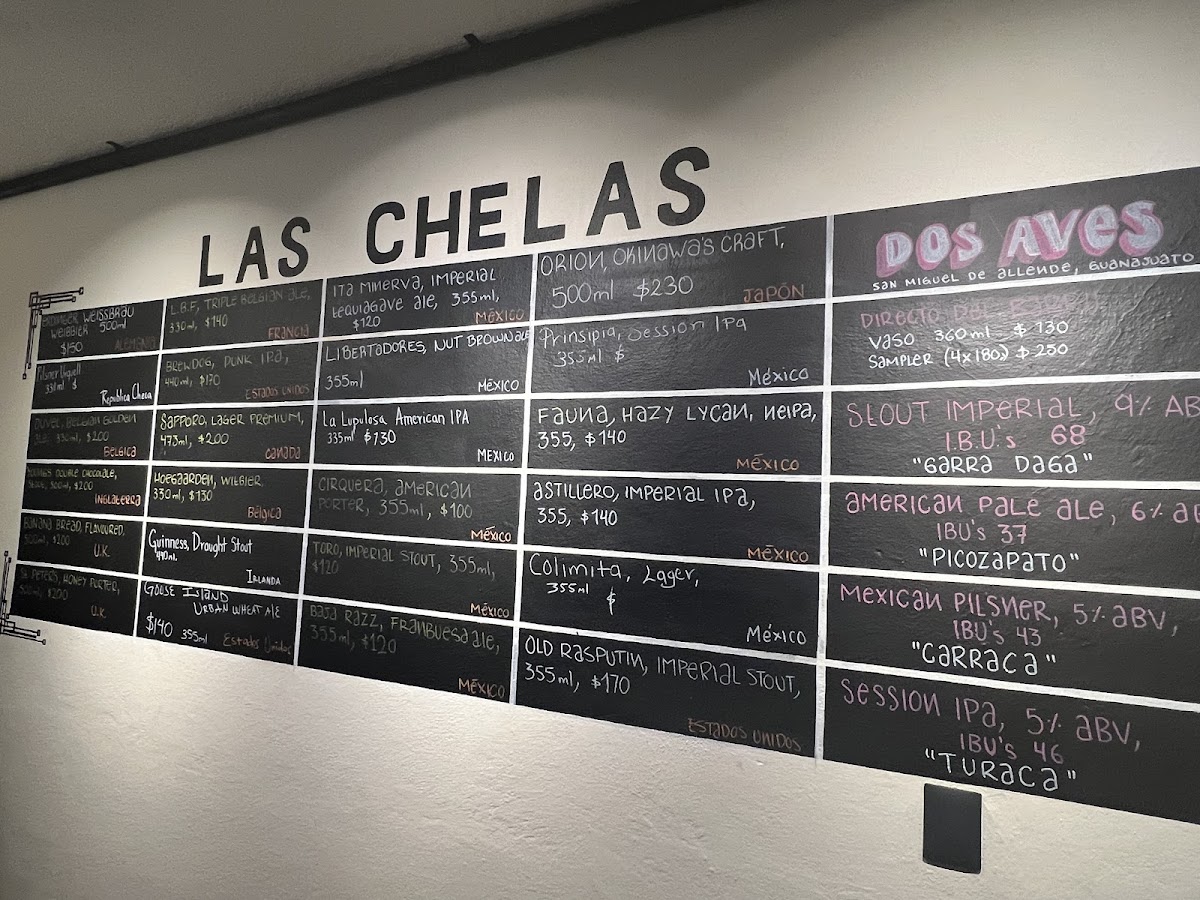 LAS CHELAS
ERDINGER WEISSBRÄU
WEIBBIER 500ml
$150
ALEMANIA
Pilsner Urquell
331ml $
Republica Checa
DUVEL, BELGIAN GOLDEN
330ml, $200
BELGICA
YOUNG'S DOUBLE CHOCOLATE,
500ml, $200
INGLATERRA
BANANA BREAD, FLAVOURED,
500ml, $200
U.K.
ST PETERS, HONEY PORTER,
500ml, $200
U.K
L.B.F, TRIPLE BELGIAN ALE,
330ml, $140
FRANCIA
BREWDOG, PUNK IPA,
440ml, $170
ESTADOS UNIDOS
SAPPORO, LAGER PREMIUM,
473ml, $200
CANADA
HOEGAARDEN, WITBIER,
330ml, $130
Bélgica
Guinness, Draught Stout
440ml.
IRLANDA
GOOSE ISLAND
URBAN WHEAT ALE
$140 355ml
Estados Unidos
ITA MINERVA, IMPERIAL
TEQUIAGAVE ALE, 355ml,
$120
MÉXICO
LIBERTADORES, NUT BROWN ALE
355ml
MÉXICO
La Lupulosa American IPA
335ml $130
MÉXICO
CIRQUERA, AMERICAN
PORTER, 355ml, $100
MÉXICO
TORO, IMPERIAL STOUT, 355ml,
$120
MÉXICO
BAJA RAZZ, FRANBUESA ALE,
355ml, $120
MÉXICO
ORION, OKINAWA'S CRAFT,
500ml $230
JAPÓN
Prinsipia, Session IPA
355ml $
México
FAUNA, HAZY LYCAN, NEIPA,
355, $140
MÉXICO
ASTILLERO, IMPERIAL IPA,
355, $140
MÉXICO
Colimita, Lager,
355ml $
México
OLD RASPUTIN, IMPERIAL STOUT,
355ml, $170
ESTADOS UNIDOS
DOS AVES
SAN MIGUEL DE ALLENDE, GUANAJUATO
DIRECTO DEL
VASO 360ml $130
SAMPLER (4x180) $250
STOUT IMPERIAL, 9% AB
I.B.U's 68
"GARRA DAGA"
AMERICAN PALE ALE, 6% AB
IBU's 37
"PICOZAPATO"
MEXICAN PILSNER, 5% ABV,
IBU's 43
"CARRACA"
SESSION IPA, 5% ABV,
IBU's 46
"TURACA"